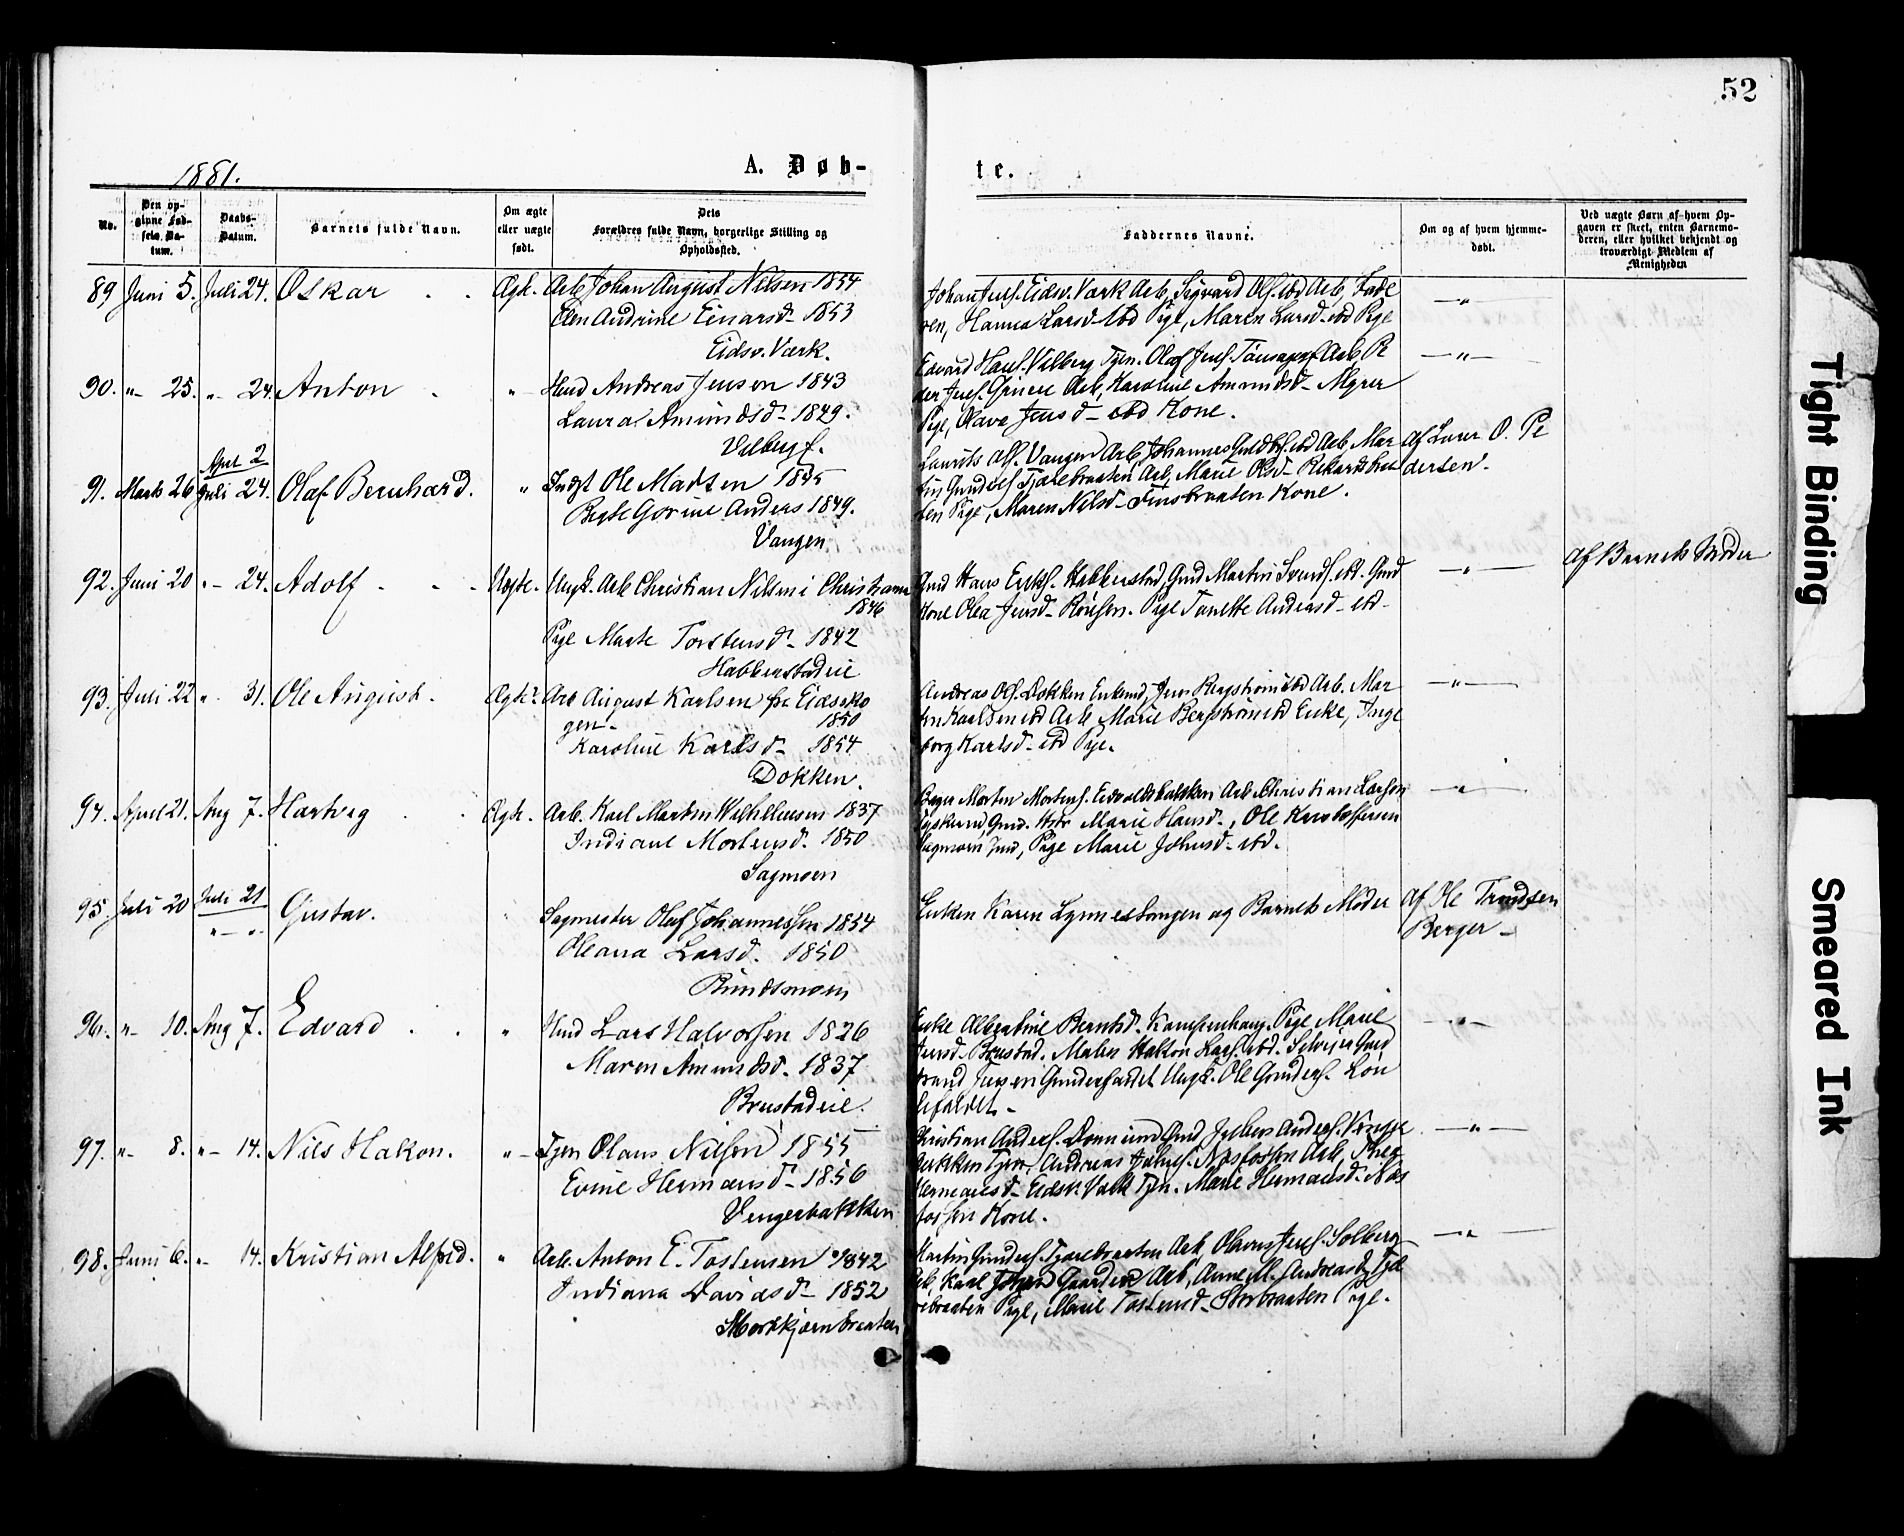 52
1881.
A. Døb-
te.
No.
Den op-
givne Fød-
sels Da-
tum.
Daabs-
Datum.
Barnets fulde Navn.
Om ægte
eller uægte
født.
Dets
Forældres fulde Navn, borgerlige Stilling og
Opholdssted.
Faddernes Navne.
Om og af hvem hjemme-
døbt.
Ved uægte Børn af hvem Op-
gaven er skeet, enten Barnemo-
deren, eller hvilket bekjendt og
troværdigt Medlem af
Menigheden
89 Juni 5. Juli 24. Oskar Ægte. Arb Johan August Nilsen 1854
Elen Andrine Einarsd- 1853
Eidsv. Værk.
Johan Eidsv. Værk Arb, Sigvard Ols. ibd Arb,
ren, Hanna Larsd- ibd Pige, Maren Larsd- ibd Pige
90. " 25. " 24. Anton " Husmd Andreas Jensen 1843
Laura Amundsd- 1849.
Vilberg
Edvard Hans. Vilberg Tjen. Olaf Jens. Arb Pe
der Jens. Arb, Karoline Amundsd-
Pige, Olava Jensd- ibd Kone.
91. Marts 26 April 2
Juli 24. Olaf Bernhard. " Ole Madsen 1845
Berte Gorine Anders 1849.
Vangen
Laurits Vangen Arb Johannes ibd Arb, Mar
tin Gunders Tjærebraaten Arb, Marie Olsd-
Pige, Maren Nilsd- Finsbraaten Kone.
af Laur O. Pe
dersen.
92. Juni 20 " 24. Adolf Uægte. Ungk. Arb Christian Nilsen i Christiania
1846
Pige Marte Torstensd- 1842
Habberstadeie
Gmd Hans Eriks. Habberstad, Gmd Martin Svends. ibd. Gmd
Kone Olea Jensd- Pige Tanette Andersd- ibd-
af Barnets Moder
93. Juli 22 " 31. Ole August. Ægte. Arb August Karlsen fra Eidssko
gen- 1850
Karoline Karlsd- 1854
Dokken.
Andreas Ols. Dokken Enkemd, Jens Bergstrøm ibd Arb. Mar
tin Karlsen ibd Arb. Marie Bergstrøm ibd Enke, Inge
borg Karlsd- ibd Pige.
94. April 21. Aug 7. Hartvig Ægte. Arb. Karl Martin Wilhelmsen 1837
Indiane Mortensd. 1850
Sagmoen
Morten Mortens. Eidsvoldsbakken Arb Christian Larsen
Marie Hansd-, Ole Kristoffersen
Sagmoen Pige Marie Johnsd- ibd.
95. Juli 20 Juli 21 Gustav. Sagmester Olaf Johannessen 1854
Oleana Larsd. 1850
Rundsmoen
Enken Karen Lynnes Langen og Barnets Moder
af Ole Trondsen
Berger-
96. " 10. Aug 7. Edvard " Husmd Lars Halvorsen 1826
Maren Amundsd. 1837
Brustadeie.
Enke Albertine Berntsd. Pige Marie
Jensd- Brustad. Maler Hakon Lars. ibd.
Ungk. Ole Gunders. Løn
lifaldet-
97. " 8. " 14. Nils Hakon. " Tjen Olaus Nilsen 1855
Evine Hermansd- 1856
Vengerbakken
Christian Anders. Gmd, Julius Anders.
bakken Tjen, Andreas Johns. Arb,
Hermansd- Eidsv. Værk Tjen. Marie Hermansd-
Kone.
98. Juni 6. " 14. Kristian Alfred. " Arb. Anton E. Tostensen 1842
Indiana Davidsd- 1852
Mørkkjærnbraaten
Martin Gunders. Tjærebraaten Arb, Olavus Jens. Solberg
Arb, Karl Johan Arb, Anne M. Andreasd. Tjæ
rebraaten Pige, Marie Tostensd- Storbraaten Pige.
Tight Binding
Smeared Ink